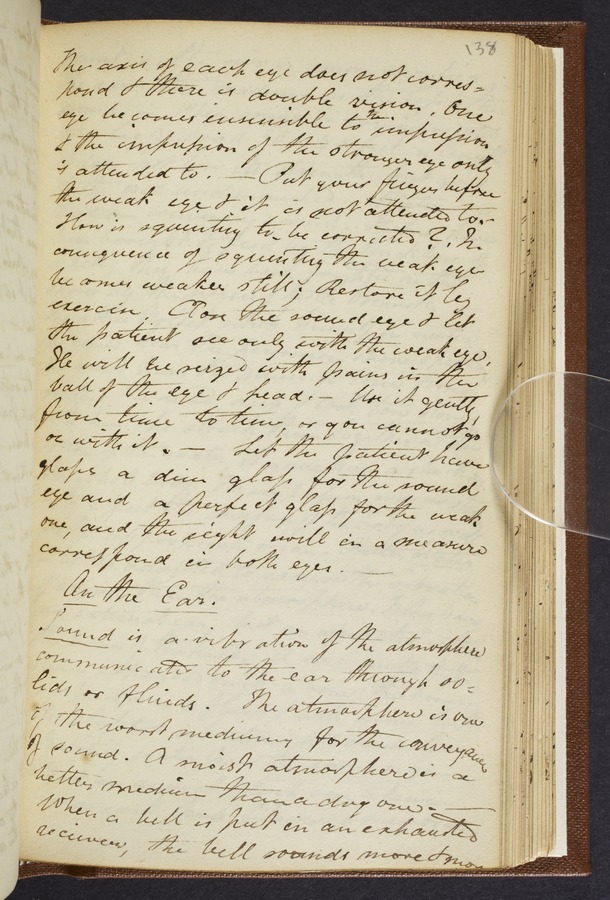 138
The axis of each eye does not corres=
pond & there is double vision. One
eye becomes insensible to the impression
& the impression of the stronger eye only
is attended to. — Put your finger before
the weak eye & it is not attended to.
How is squinting to be corrected? In
consequence of squinting the weak eye
becomes weaker still; Restore it by
exercise. Close the sound eye & let
the patient see only with the weak eye.
He will be seized with pains in the
ball of the eye & head. — Use it gently
from time to time, or you cannot go
on with it. — Let the patient have
glass a dim glass for the sound
eye and a perfect glass for the weak
one, and the sight will in a measure
correspond in both eyes. —
On the Ear.
Sound is a vibration of the atmosphere
communicated to the ear through so=
lids or fluids. The atmosphere is one
of the worst mediums for the conveyance
of sound. A moist atmosphere is a
better medium than a dry one. —
When a bell is put in an exhausted
receiver, the bell sounds more & more